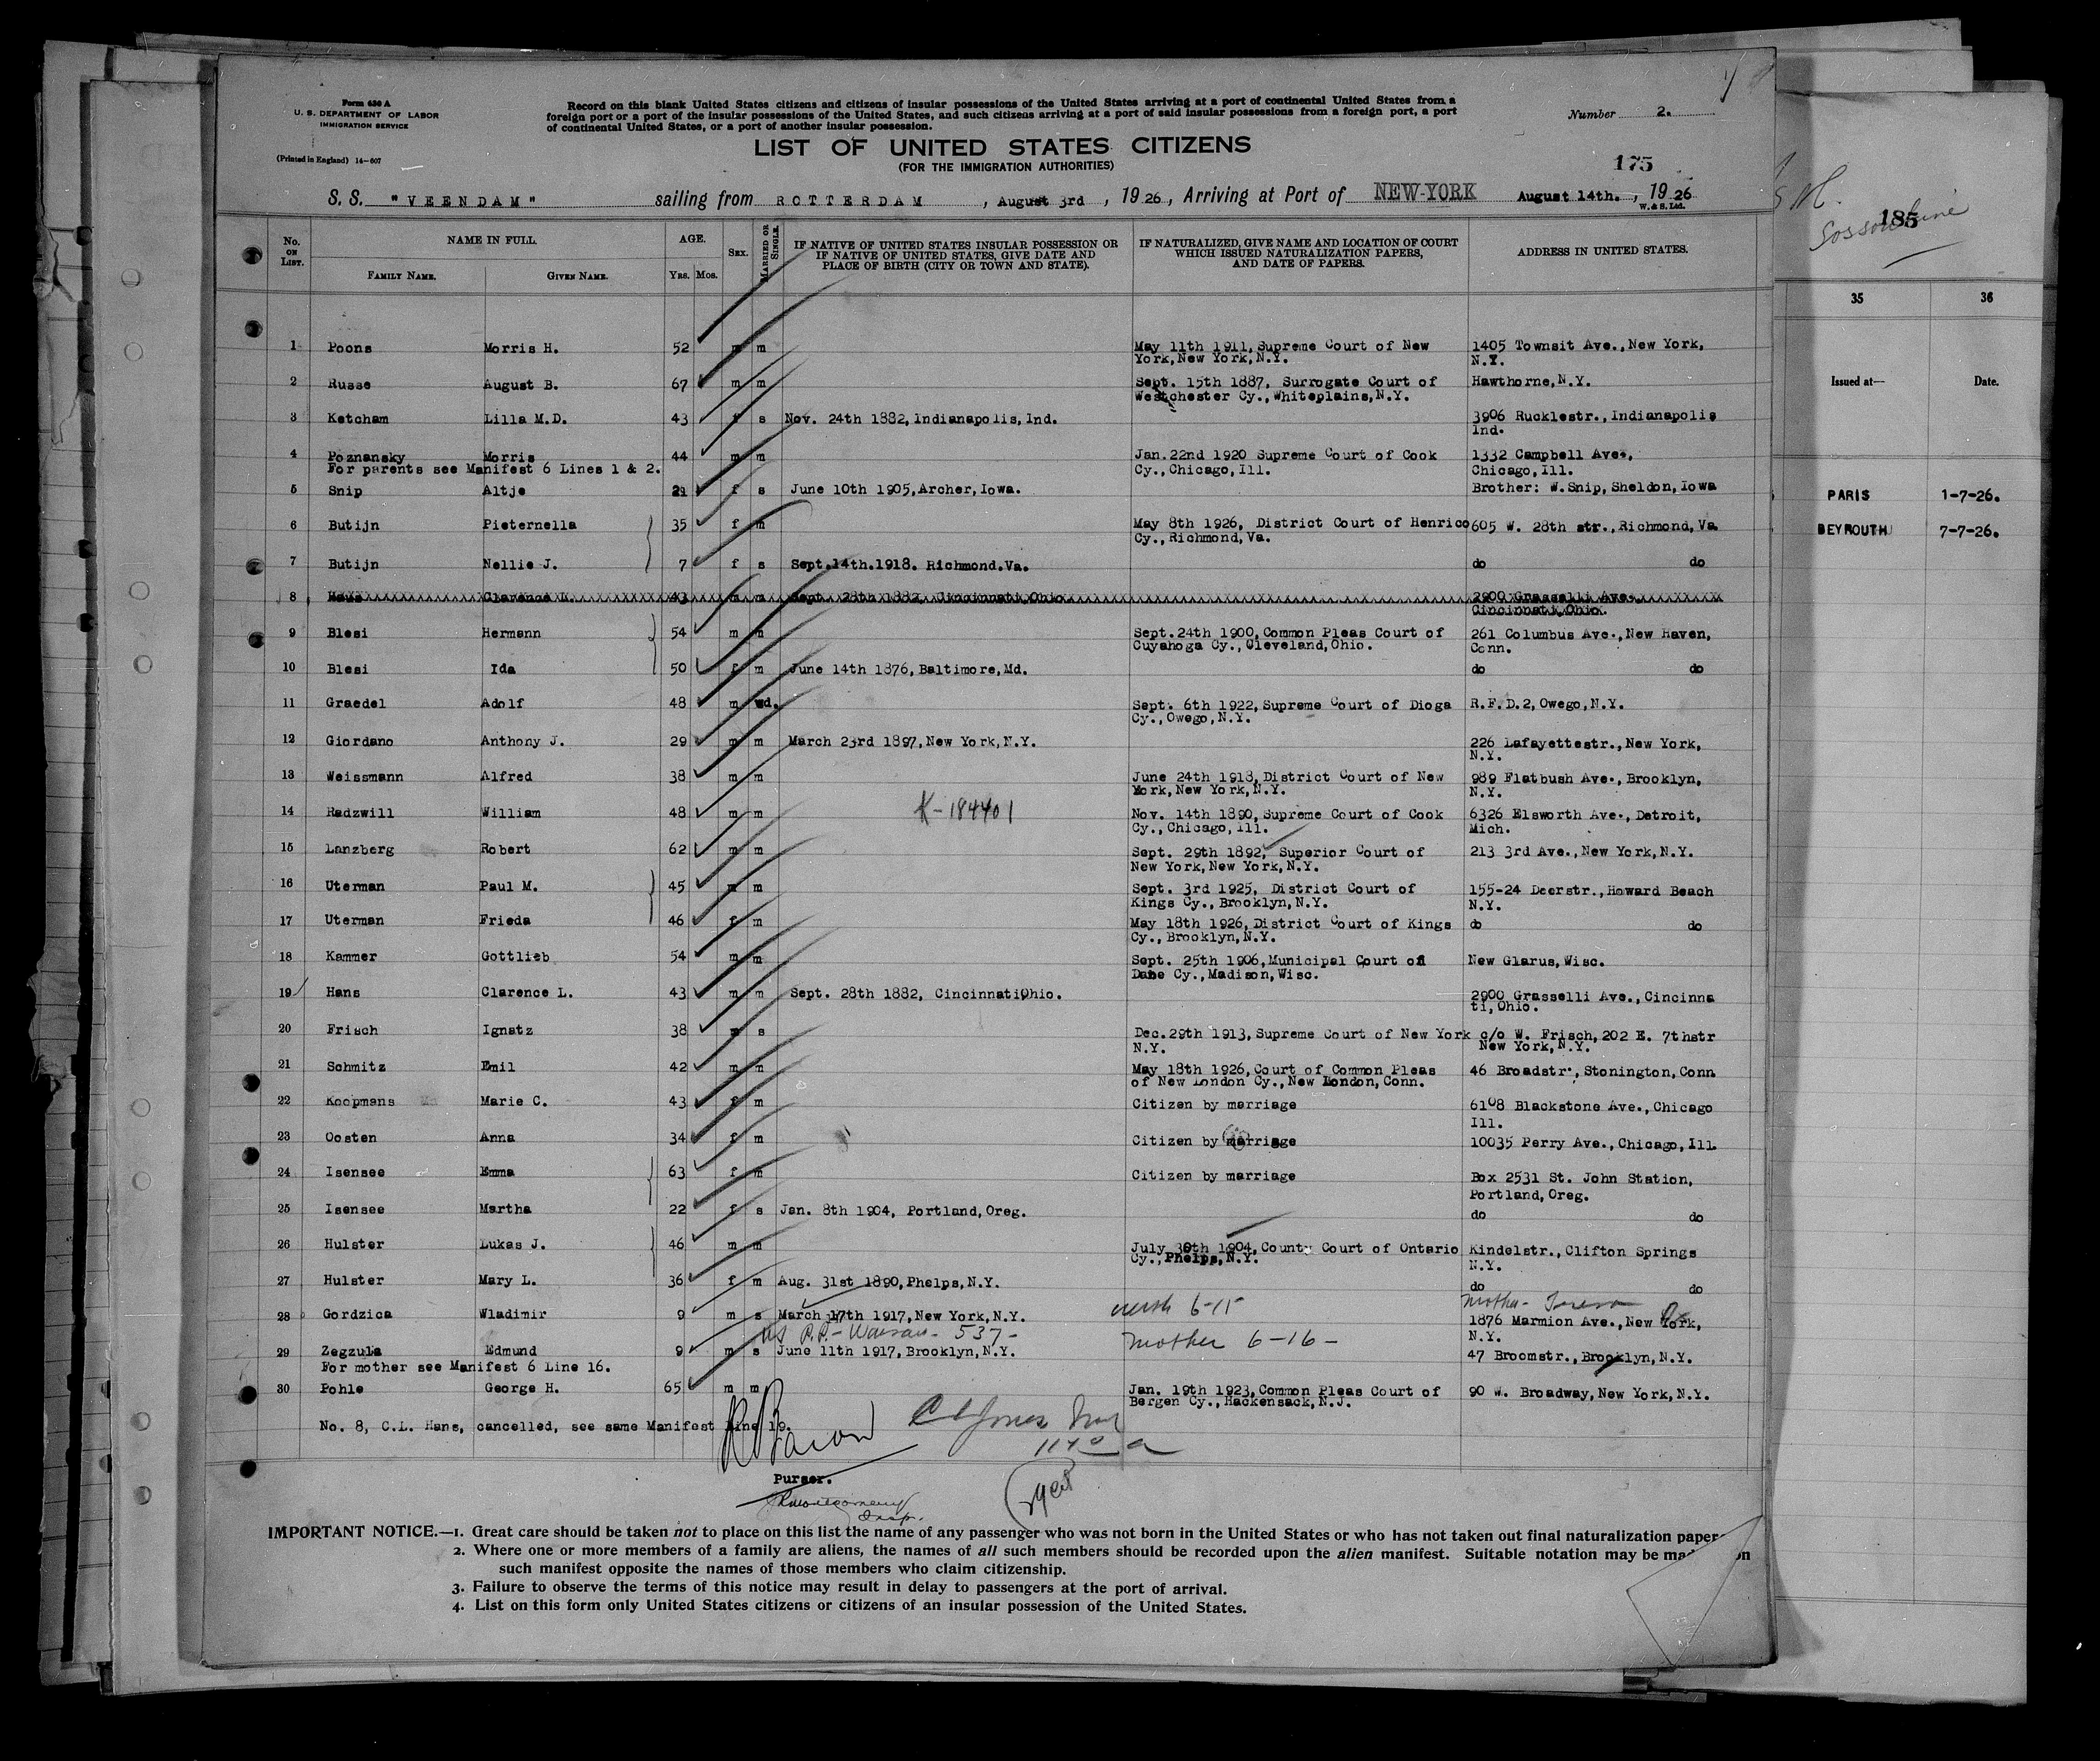 Form 630 A
U. S. DEPARTMENT OF LABOR
IMMIGRATION SERVICE
(Printed in England) 14-607
Record on this blank United States citizens and citizens of insular possessions of the United States arriving at a port of continental United States from a
foreign port or a port of the insular possessions of the United States, and such citizens arriving at a port of said insular possessions from a foreign port, a port
of continental United States, or a port of another insular possession.
Number 2.
LIST OF UNITED STATES CITIZENS
(FOR THE IMMIGRATION AUTHORITIES)
175
S. S. "VEENDAM" sailing from ROTTERDAM, August 3rd, 1926, Arriving at Port of NEW-YORK August 14th., 1926
W. & S. Ltd.
No. ON LIST. NAME IN FULL. FAMILY NAME. GIVEN NAME. AGE. YRS. MOS. SEX. MARRIED OR SINGLE. IF NATIVE OF UNITED STATES INSULAR POSSESSION OR IF NATIVE OF UNITED STATES, GIVE DATE AND PLACE OF BIRTH (CITY OR TOWN AND STATE). IF NATURALIZED, GIVE NAME AND LOCATION OF COURT WHICH ISSUED NATURALIZATION PAPERS, AND DATE OF PAPERS. ADDRESS IN UNITED STATES.
1 Poons Morris H. 52 m m May 11th 1911, Supreme Court of New 1405 Townsit Ave., New York,
York, New York, N.Y. N.Y.
2 Russe August B. 67 m m Sept. 15th 1887, Surrogate Court of Hawthorne, N.Y.
Westchester Cy., Whiteplains, N.Y.
3 Ketcham Lilla M.D. 43 f s Nov. 24th 1882, Indianapolis, Ind. 3906 Rucklestr., Indianapolis
Ind.
4 Poznansky Morris 44 m m Jan. 22nd 1920 Supreme Court of Cook 1332 Campbell Ave.,
For parents see Manifest 6 Lines 1 & 2. Cy., Chicago, Ill. Chicago, Ill.
5 Snip Altje 21 f s June 10th 1905, Archer, Iowa. Brother: W. Snip, Sheldon, Iowa
6 Butijn Pieternella 35 f m May 8th 1926, District Court of Henrico 605 W. 28th str., Richmond, Va
Cy., Richmond, Va.
7 Butijn Nellie J. 7 f s Sept. 14th. 1918. Richmond. Va. do do
8 Clarence L. 43 m m Sept. 28th 1882, Cincinnati, Ohio 2900 Grasselli Ave.,
Cincinnati, Ohio.
9 Blesi Hermann 54 m m Sept. 24th 1900, Common Pleas Court of 261 Columbus Ave., New Haven,
Cuyahoga Cy., Cleveland, Ohio. Conn.
10 Blesi Ida 50 f m June 14th 1876, Baltimore, Md. do do
11 Graedel Adolf 48 m wd. Sept. 6th 1922, Supreme Court of Dioga R.F.D.2, Owego, N.Y.
Cy., Owego, N.Y.
12 Giordano Anthony J. 29 m m March 23rd 1897, New York, N.Y. 226 Lafayettestr., New York,
N.Y.
13 Weissmann Alfred 38 m m June 24th 1918, District Court of New 989 Flatbush Ave., Brooklyn,
York, New York, N.Y. N.Y.
14 Radzwill William 48 m m K-184401 Nov. 14th 1890, Supreme Court of Cook 6326 Elsworth Ave., Detroit,
Cy., Chicago, Ill. Mich.
15 Lanzberg Robert 62 m m Sept. 29th 1892, Superior Court of 213 3rd Ave., New York, N.Y.
New York, New York, N.Y.
16 Uterman Paul M. 45 m m Sept. 3rd 1925, District Court of 155-24 Deerstr., Howard Beach
Kings Cy., Brooklyn, N.Y. N.Y.
17 Uterman Frieda 46 f m May 18th 1926, District Court of Kings do do
Cy., Brooklyn, N.Y.
18 Kammer Gottlieb 54 m m Sept. 25th 1906, Municipal Court of New Glarus, Wisc.
Dane Cy., Madison, Wisc.
19 Hans Clarence L. 43 m m Sept. 28th 1882, Cincinnati Ohio. 2900 Grasselli Ave., Cincinna
ti, Ohio.
20 Frisch Ignatz 38 m s Dec. 29th 1913, Supreme Court of New York c/o W. Frisch, 202 E. 7thstr
N.Y. New York, N.Y.
21 Schmitz Emil 42 m m May 18th 1926, Court of Common Pleas 46 Broadstr., Stonington, Conn
of New London Cy., New London, Conn.
22 Koopmans Marie C. 43 f m Citizen by marriage 6108 Blackstone Ave., Chicago
Ill.
23 Oosten Anna 34 f m Citizen by marriage 10035 Perry Ave., Chicago, Ill.
24 Isensee Emma 63 f m Citizen by marriage Box 2531 St. John Station,
Portland, Oreg.
25 Isensee Martha 22 f s Jan. 8th 1904, Portland, Oreg. do do
26 Hulster Lukas J. 46 m m July 30th 1904, County Court of Ontario Kindelstr., Clifton Springs
Cy., Phelps, N.Y. N.Y.
27 Hulster Mary L. 36 f m Aug. 31st 1890, Phelps, N.Y. do do
28 Gordzica Wladimir 9 m s March 17th 1917, New York, N.Y. 6-15 Mother - Teresa
1876 Marmion Ave., New York,
US P.P. - Warsaw - 537 - Mother 6-16 - N.Y.
29 Zegzula Edmund 9 m s June 11th 1917, Brooklyn, N.Y.
For mother see Manifest 6 Line 16. 47 Broomstr., Brooklyn, N.Y.
30 Pohle George H. 65 m m Jan. 19th 1923, Common Pleas Court of 90 W. Broadway, New York, N.Y.
Bergen Cy., Hackensack, N.J.
No. 8, C.L. Hans, cancelled, see same Manifest Line 19.
Purser.
Insp.
IMPORTANT NOTICE.—1. Great care should be taken not to place on this list the name of any passenger who was not born in the United States or who has not taken out final naturalization paper
2. Where one or more members of a family are aliens, the names of all such members should be recorded upon the alien manifest. Suitable notation may be mad on
such manifest opposite the names of those members who claim citizenship.
3. Failure to observe the terms of this notice may result in delay to passengers at the port of arrival.
4. List on this form only United States citizens or citizens of an insular possession of the United States.
185
35 36
Issued at— Date.
PARIS 1-7-26.
BEYROUTH 7-7-26.